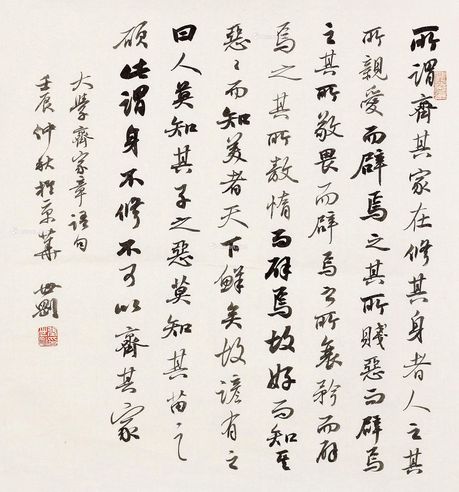 所謂齊其家在修其身者人之其
所親愛而辟焉之其所賤惡而辟焉
之其所敬畏而辟焉之所哀矜而辟
焉之其所敖惰而辟焉故好而知其
惡〻而知美者天下鮮矣故諺有之
曰人莫知其子之惡莫知其苗之
碩此謂身不修不可以齊其家
大學齊家章語句
壬辰仲秋於京華 世剛